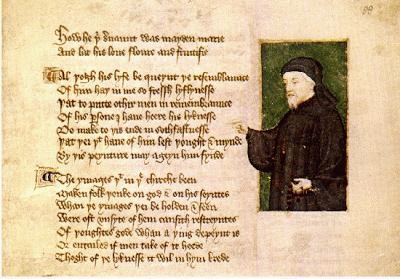 88
How he þi servaunt was mayden marie
And lat his love floure and fructifie
Al þogh his lyfe be queynt þe resemblaunce
Of him haþ in me so fressh lyflynesse
Þat to putte othir men in remembraunce
Of his persone I have heere his lyknesse
Do make to þis ende in sothfastnesse
Þat þei þt have of him lest þought & mynde
By þis peynture may ageyn him fynde
The ymages þt in þe chirche been
Maken folk þenke on god & on his seyntes
Whan þe ymages þei beholden & seen
Were oft unsyte of hem causith restreyntes
Of þoughtes gode whan a þing depeynt is
Or entailed if men take of it heede
Thoght of þe lyknesse it wil in hym brede